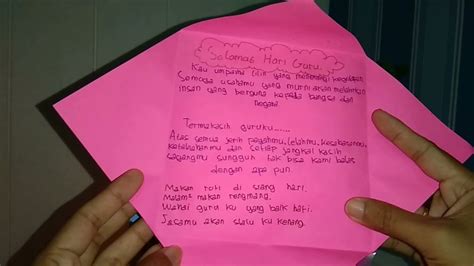 Selamat Hari Guru.
Kau umpama lilin yang menerangi kegelapan
Semoga usahamu yang murni akan melahirkan
insan yang berguna kepada bangsa dan
Negara
Termakasih guruku......
Atas semua jerih payahmu, Lelahmu, kesabaranmu,
kelebihanmu dan setiap jengkal kasih
sayangmu sungguh tak bisa kami balas
dengan apa pun.
Makan roti di siang hari.
Malam² makan rengmang.
Wahai guru ku yang baik hati.
Jasamu akan slalu ku kenang.